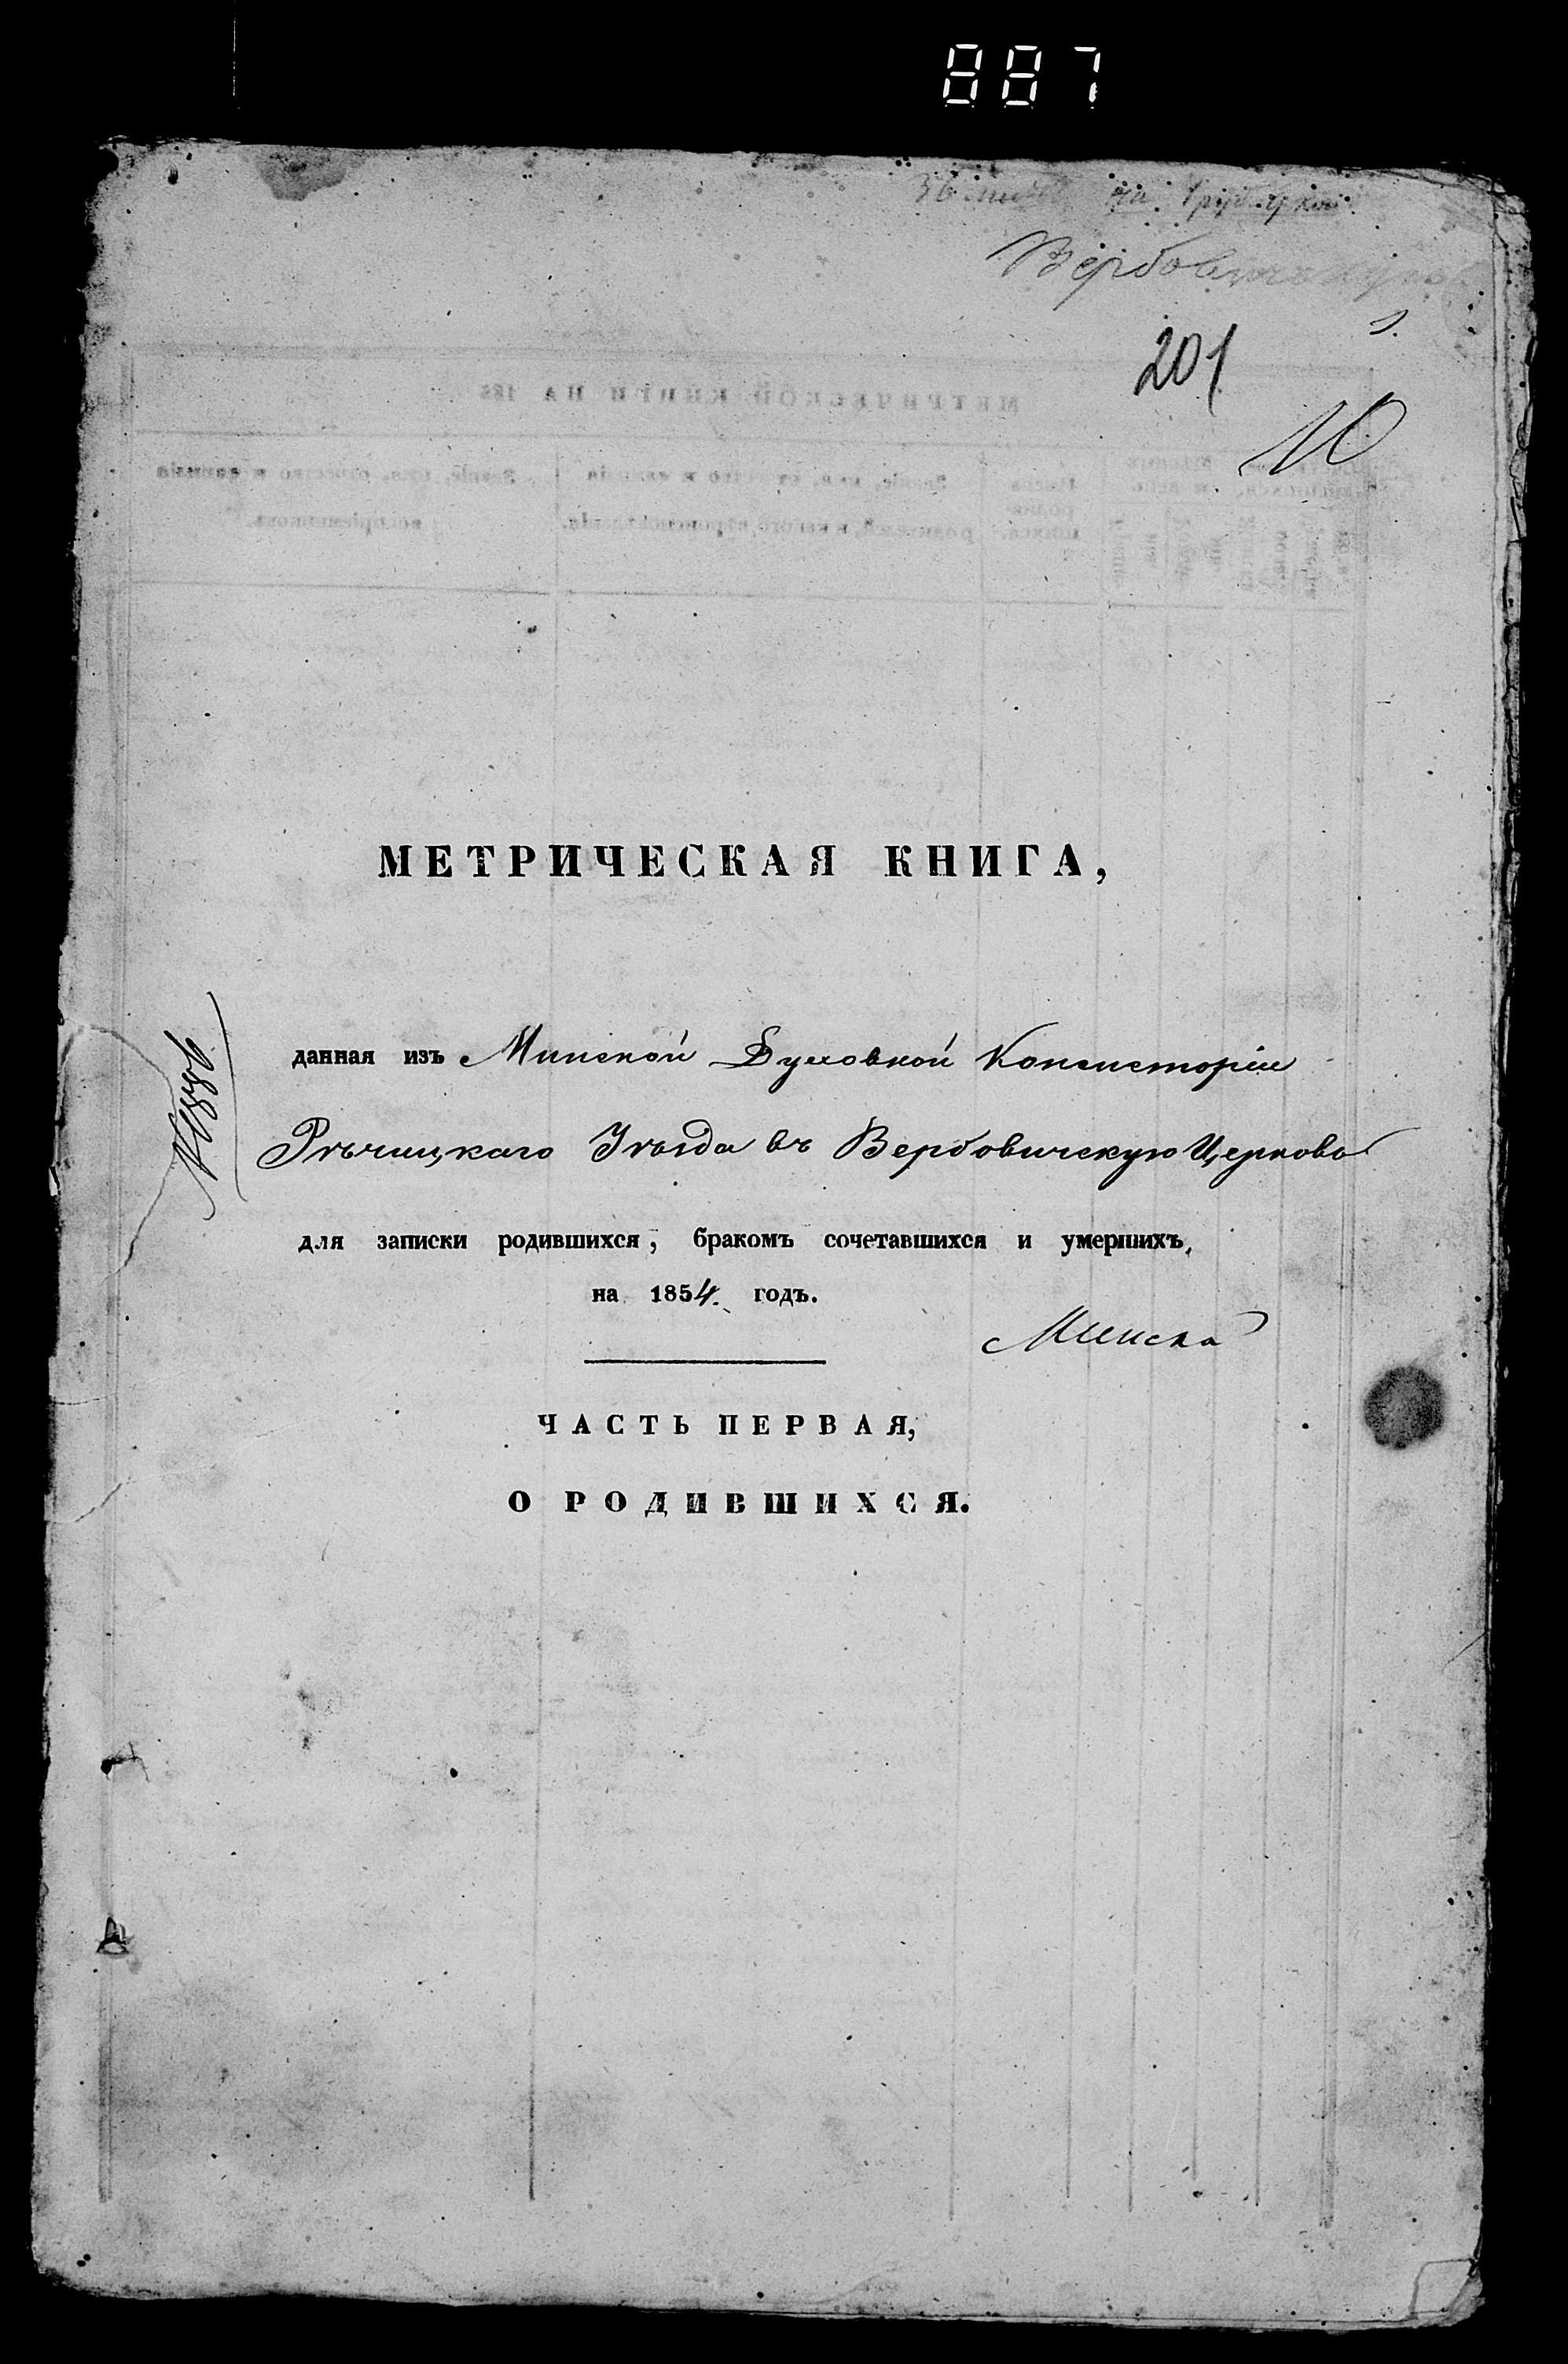 887
на 1 руб.
201
10
МЕТРИЧЕСКАЯ КНИГА,
данная изъ Минской Духовной Консисторіи
Рѣчицкаго Уѣзда въ Вербовичскую Церковь
для записки родившихся, бракомъ сочетавшихся и умершихъ,
на 1854. годъ.
Минска
ЧАСТЬ ПЕРВАЯ,
О РОДИВШИХСЯ.